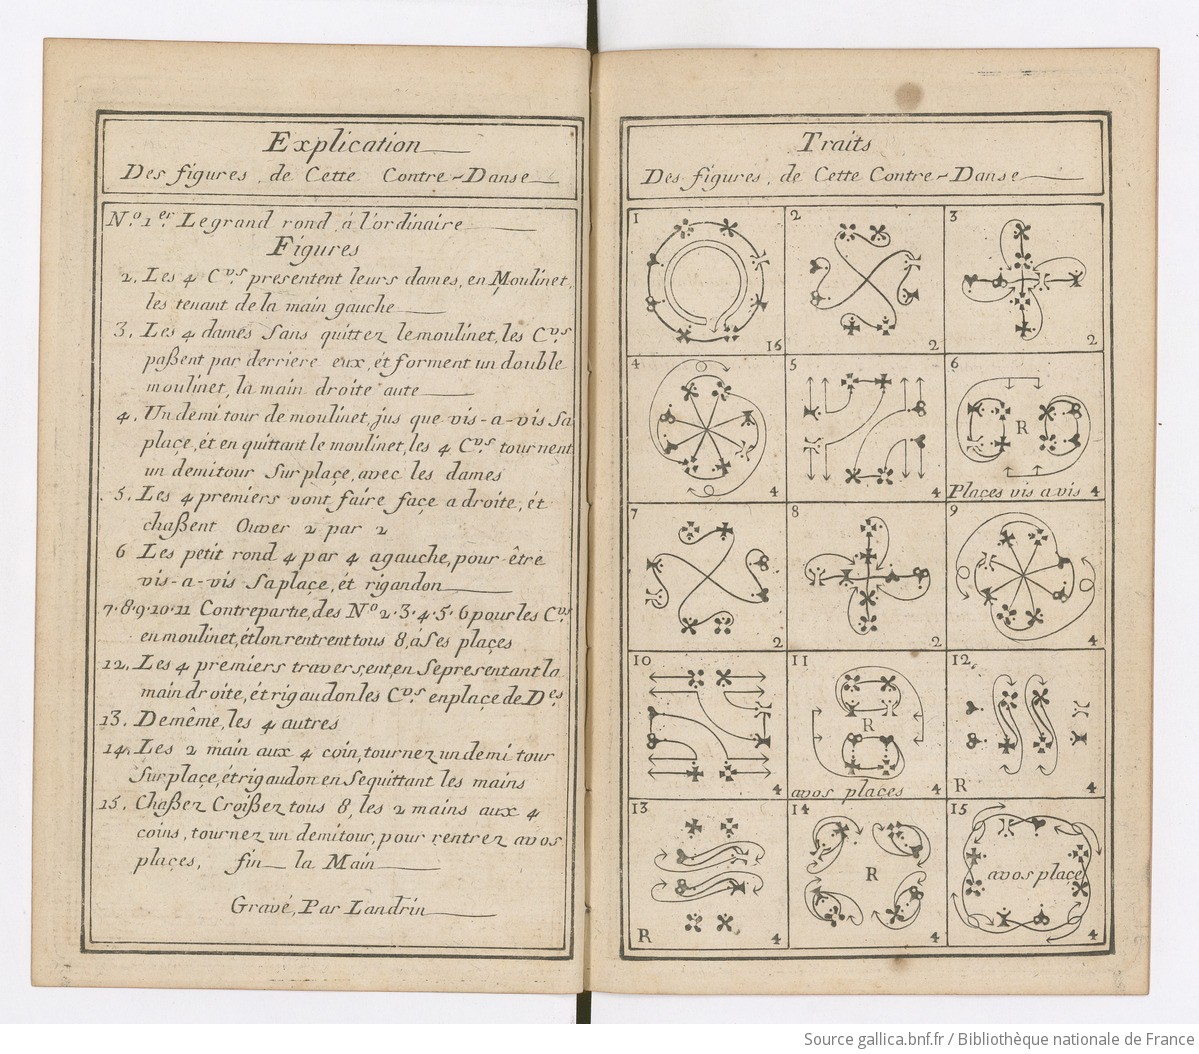 Explication
Des figures, de Cette Contre-Danse
N.º 1.er Le grand rond à l'ordinaire
Figures
2. Les 4 C.vs presentent leurs dames, en Moulinet,
les tenant de la main gauche
3. Les 4 dames sans quittez le moulinet, les C.vs
paßent par derriere eux, ét forment un double
moulinet, la main droite aute
4. Un demi tour de moulinet, jus que vis-a-vis sa
plaçe, ét en quittant le moulinet, les 4 C.vs tournent
un demi tour sur plaçe, avec les dames
5. Les 4 premiers vont faire façe a droite, ét
chaßent Ouver 2 par 2
6 Les petit rond 4 par 4 agauche, pour être
vis-a-vis sa plaçe, ét rigaudon
7.8.9.10.11 Contrepartie, des Nº 2.3.4.5.6 pour les C.vs
en moulinet, ét lon rentrent tous 8, a ses plaçes
12. Les 4 premiers traversent, en Se presentant la
main droite, ét rigaudon les C.vs en plaçe de D.es
13. De même, les 4 autres
14. Les 2 main aux 4 coin, tournez un demi tour
sur plaçe, ét rigaudon en Se quittant les mains
15. Chaßez Croißez tous 8, les 2 mains aux 4
coins, tournez un demi tour, pour rentrez a vos
plaçes, fin la Main
Gravé, Par Landrin
Traits
Des figures, de Cette Contre-Danse
1
16
2
2
3
2
4
4
5
4
6
R
Plaçes vis a vis 4
7
2
8
2
9
4
10
4
11
R
avos plaçes 4
12.
R
4
13
R
4
14
R
4
15
avos plaçe
4
Source gallica.bnf.fr / Bibliothèque nationale de France